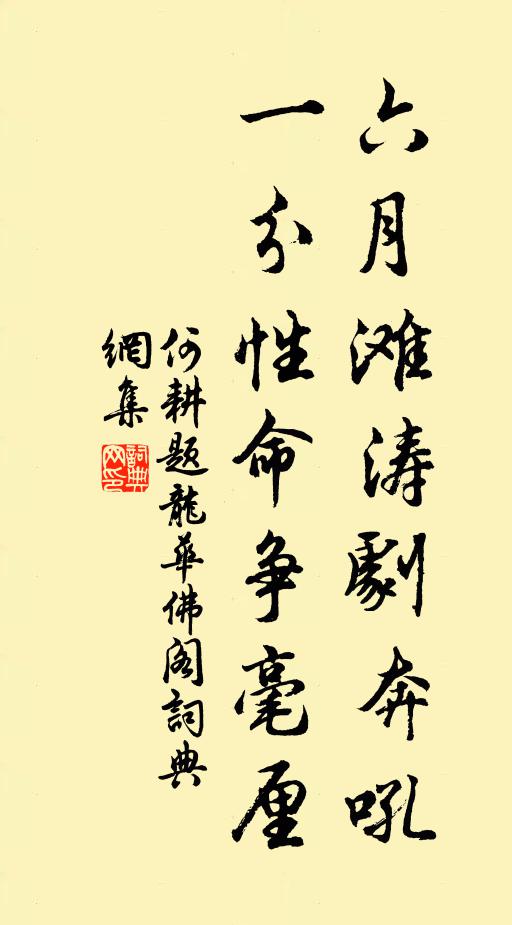 六月滩涛劇奔吼
一分性命争毫厘
何耕题龍華佛阁詞典
網集
詞典
网印